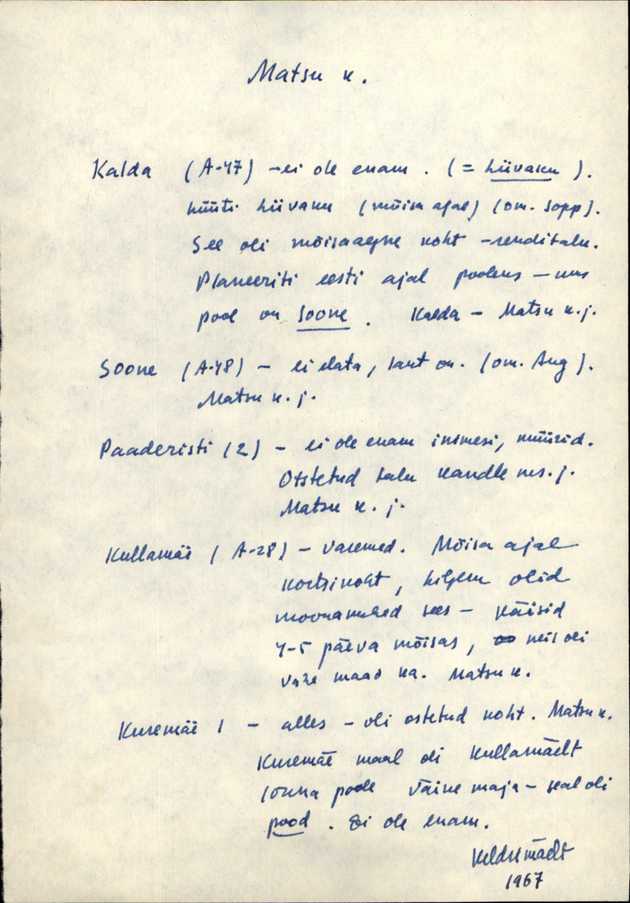 Matsu k.
Kalda (A-47) - ei ole enam. (= Liivaku).
hüüti Liivaku (mõisa ajal) (om. Sopp).
See oli mõisaaegne koht - renditalu.
Planeeriti eesti ajal pooleks - uus
pool on Soone. Kalda - Matsu k.j.
Soone (A-48) - ei elata, laut on. (om. Aug).
Matsu k.j.
Paaderisti (2) - ei ole enam inimesi, müürid.
Ostetud talu Kandle ms. j.
Matsu k. j.
Kullamäe (A-28) - varemed. Mõisa ajal
kortsikoht, hiljem olid
moonamehed sees - käisid
4-5 päeva mõisas, neil oli
vähe maad ka. Matsu k.
Kuremäe 1 - alles - oli ostetud koht. Matsu k.
Kuremäe maal oli Kullamäelt
lõuna poole väike maja - seal oli
pood. Ei ole enam.
1967